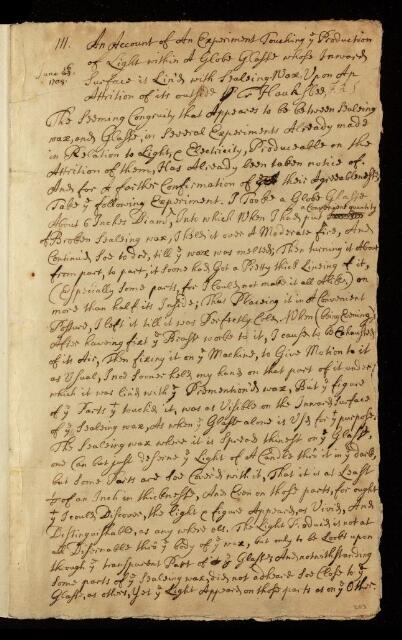 111. An Account of An Experiment Touching yͤ Production
of Light within A Globe Glasse whose Inward
June 25 1708. Surface is Lin'd with Sealeing Wax, Upon An
Attrition of its outside ℔ Fra Hauksbee F R S
The Seeming Congruity that Appears to be between Sealeing
wax, and Glasse, in Several Experiments Already made
in Relation to Light, & Electricity, Produceable on the
Attrition of them, Has Already been taken notice of.
And for A farther Confirmation of their Agreeableness,
Take yͤ following Experiment. I Took a Globe Glasse
About 6 Inches Diamr, Into which When I had put a Convenient quantity
of Broken Sealeing wax, I held it over A Moderate fire, And
Continued soe to doe, till yͤ wax was melted; Then turning it About
from part, to part, it soone had Got a Pretty thick Lineing of it,
(Especially some parts, for I could not make it all Alike) on
more than half its Inside; That Placing it in A Convenient
Posture, I left it till it was Perfectly Cold. When (Long Evening)
After haveing fixt yͤ Brasse worke to it, I caused to be Exhausted
of its Air, Then fixing it on yͤ Machine, to Give Motion to it
as Usual, I noe sooner held my hand on that part of it under
which it was lin'd with yͤ Demention'd wax, But yͤ figure
of yͤ Parts yͭ touch'd it, was as Visible on the Inward Surface
of yͤ Sealeing wax, As when yͤ Glasse alone is Us'd for yͤ purpose.
The Sealeing wax where it is Spread thinest on yͤ Glasse,
one Can but just Deserne yͤ Light of A Candle thro' it in yͤ dark,
but Some Parts are Soe Cover'd with it, That it is at Least
of an Inch in thickness, And Even on those parts, for ought
yͭ I could Discover, the light & figure Appeard, as Vivid, And
Distinguishable, as any where els. The Light Produc'd is not at
all Desernable thro' yͤ body of yͤ wax, but only to be Lookt upon
through yͤ transparent Part of yͤ Glasse, And notwithstanding
Some parts of yͤ Sealeing wax, did not adhere Soe Close to yͤ
Glasse, as others, Yet yͤ Light Appeard on those parts as on yͤ Other.